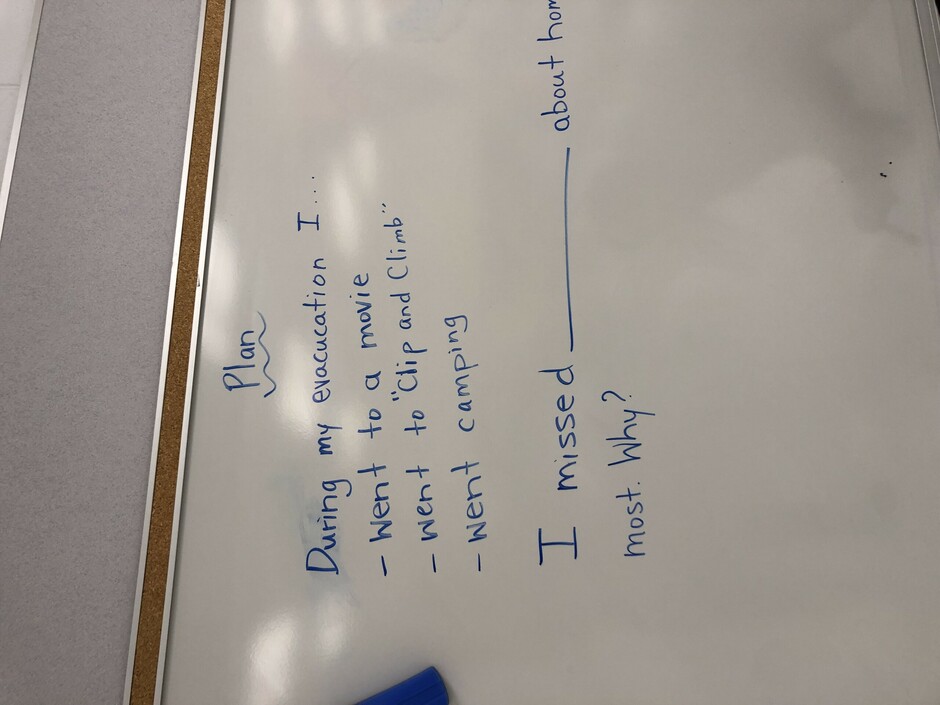 Plan
During my evacucation I...
- Went to a movie
- Went to "Clip and Climb"
- Went camping
I missed ______ about hom
most. Why?